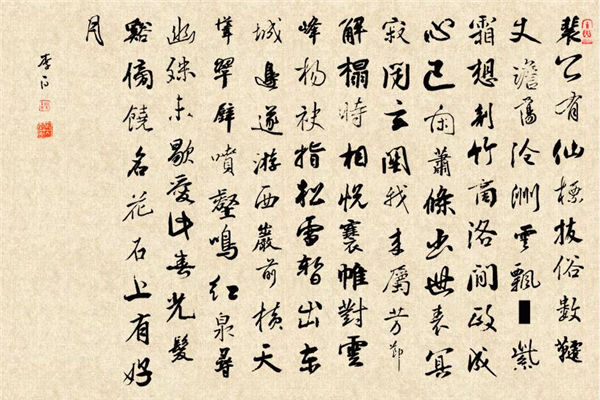 裴公有仙標拔俗數韆
丈澹蕩滄洲雲飄紫
霞想剖竹商洛間政成
心已閑蕭條出世表冥
寂閉玄關我來屬芳節
解榻時相悅褰帷對雲
峰揚袂指松雪暫出東
城邊遂游西巖前橫天
聳翠壁噴壑鳴紅泉尋
幽殊未歇愛此春光髮
谿傍饒名花石上有好
月
李白